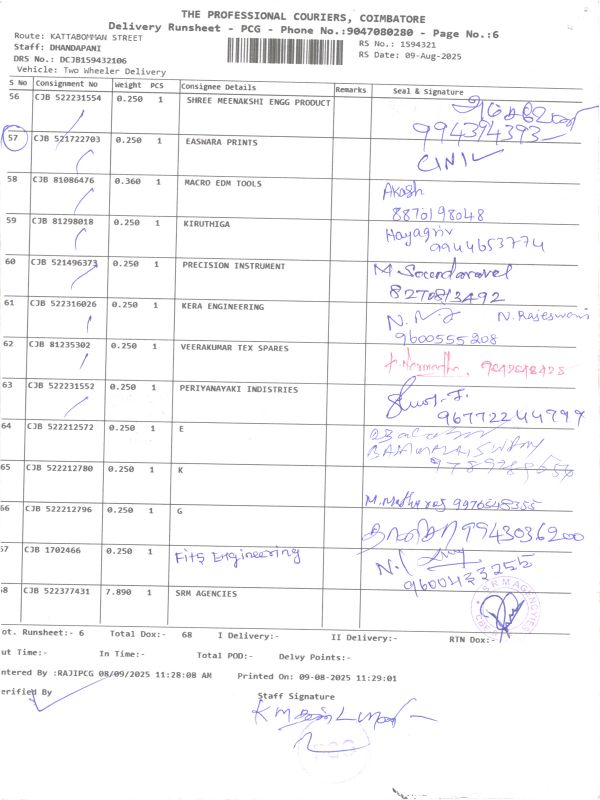 THE PROFESSIONAL COURIERS, COIMBATORE
Delivery Runsheet - PCG - Phone No.:9047080280 - Page No.:6
Route: KATTABOMMAN STREET
Staff: DHANDAPANI
DRS No.: DCJB159432106
Vehicle: Two Wheeler Delivery
RS No.: 1594321
RS Date: 09-Aug-2025
S No Consignment No Weight PCS Consignee Details Remarks Seal & Signature
56 CJB 522231554 0.250 1 SHREE MEENAKSHI ENGG PRODUCT
994394393
57 CJB 521722703 0.250 1 EASWARA PRINTS
58 CJB 81086476 0.360 1 MACRO EDM TOOLS Akash
8870198048
59 CJB 81298018 0.250 1 KIRUTHIGA Hayagriv
9944653774
60 CJB 521496373 0.250 1 PRECISION INSTRUMENT
8270813492
61 CJB 522316026 0.250 1 KERA ENGINEERING N. Rajeswari
9600555208
62 CJB 81235302 0.250 1 VEERAKUMAR TEX SPARES
63 CJB 522231552 0.250 1 PERIYANAYAKI INDISTRIES
96772244799
64 CJB 522212572 0.250 1 E
65 CJB 522212780 0.250 1 K
M. 9976548355
66 CJB 522212796 0.250 1 G 9943036200
67 CJB 1702466 0.250 1 Fits Engineering
68 CJB 522377431 7.890 1 SRM AGENCIES
ot. Runsheet:- 6 Total Dox:- 68 I Delivery:- II Delivery:- RTN Dox:-
ut Time:- In Time:- Total POD:- Delvy Points:-
ntered By :RAJIPCG 08/09/2025 11:28:08 AM Printed On: 09-08-2025 11:29:01
erified By Staff Signature